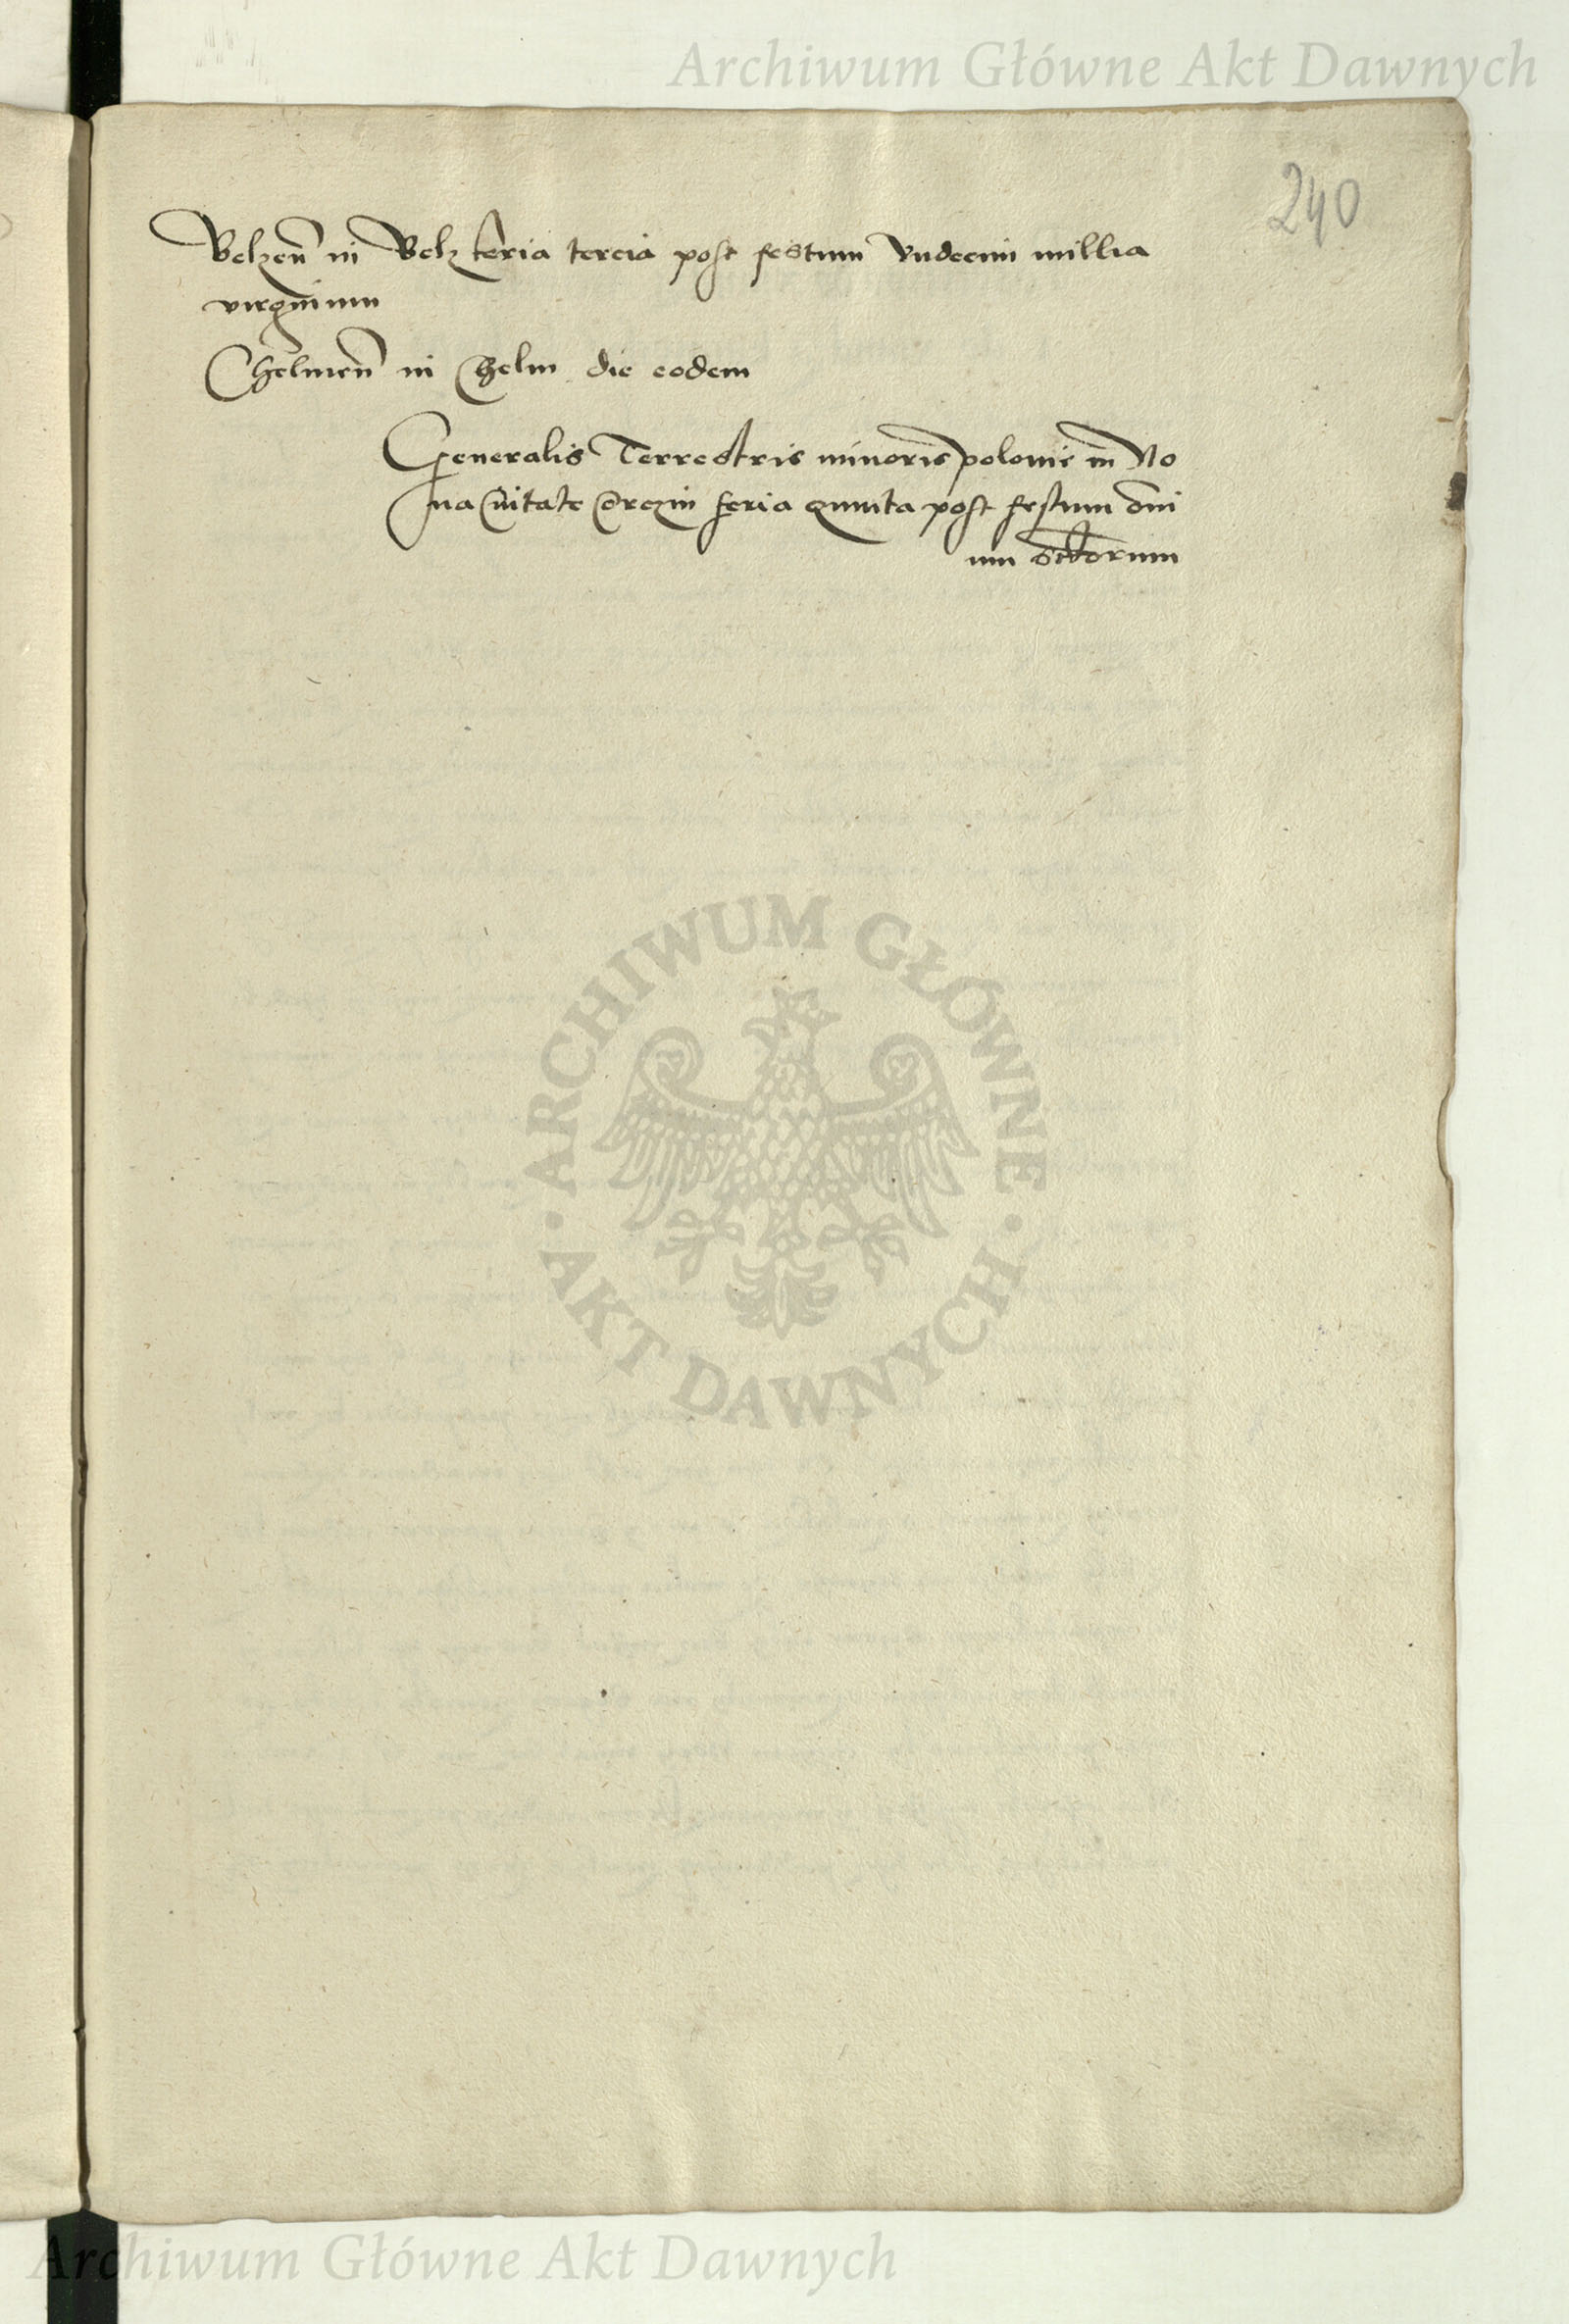 Archiwum Główne Akt Dawnych
240
Belzen̄ in Belz feria tercia post festum Vndecim millia
virginum
Chelmen̄ in Chelm die eodem
Generalis Terrestris minoris polonie in No
ua Ciuitate Corczin feria quinta post festum om̄i
um sc̄torum
ARCHIWUM GŁÓWNE
AKT DAWNYCH
Archiwum Główne Akt Dawnych